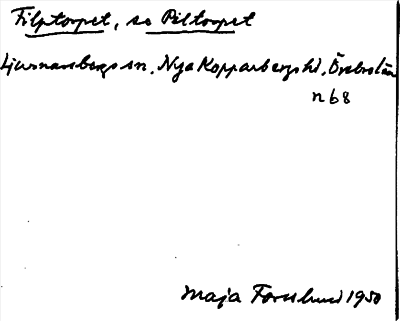 Filptorpet, se Piltorpet
Ljusnarsbergs sn, Nya Kopparbergs hd, Örebro län
n 68
Maja Forslund 1950